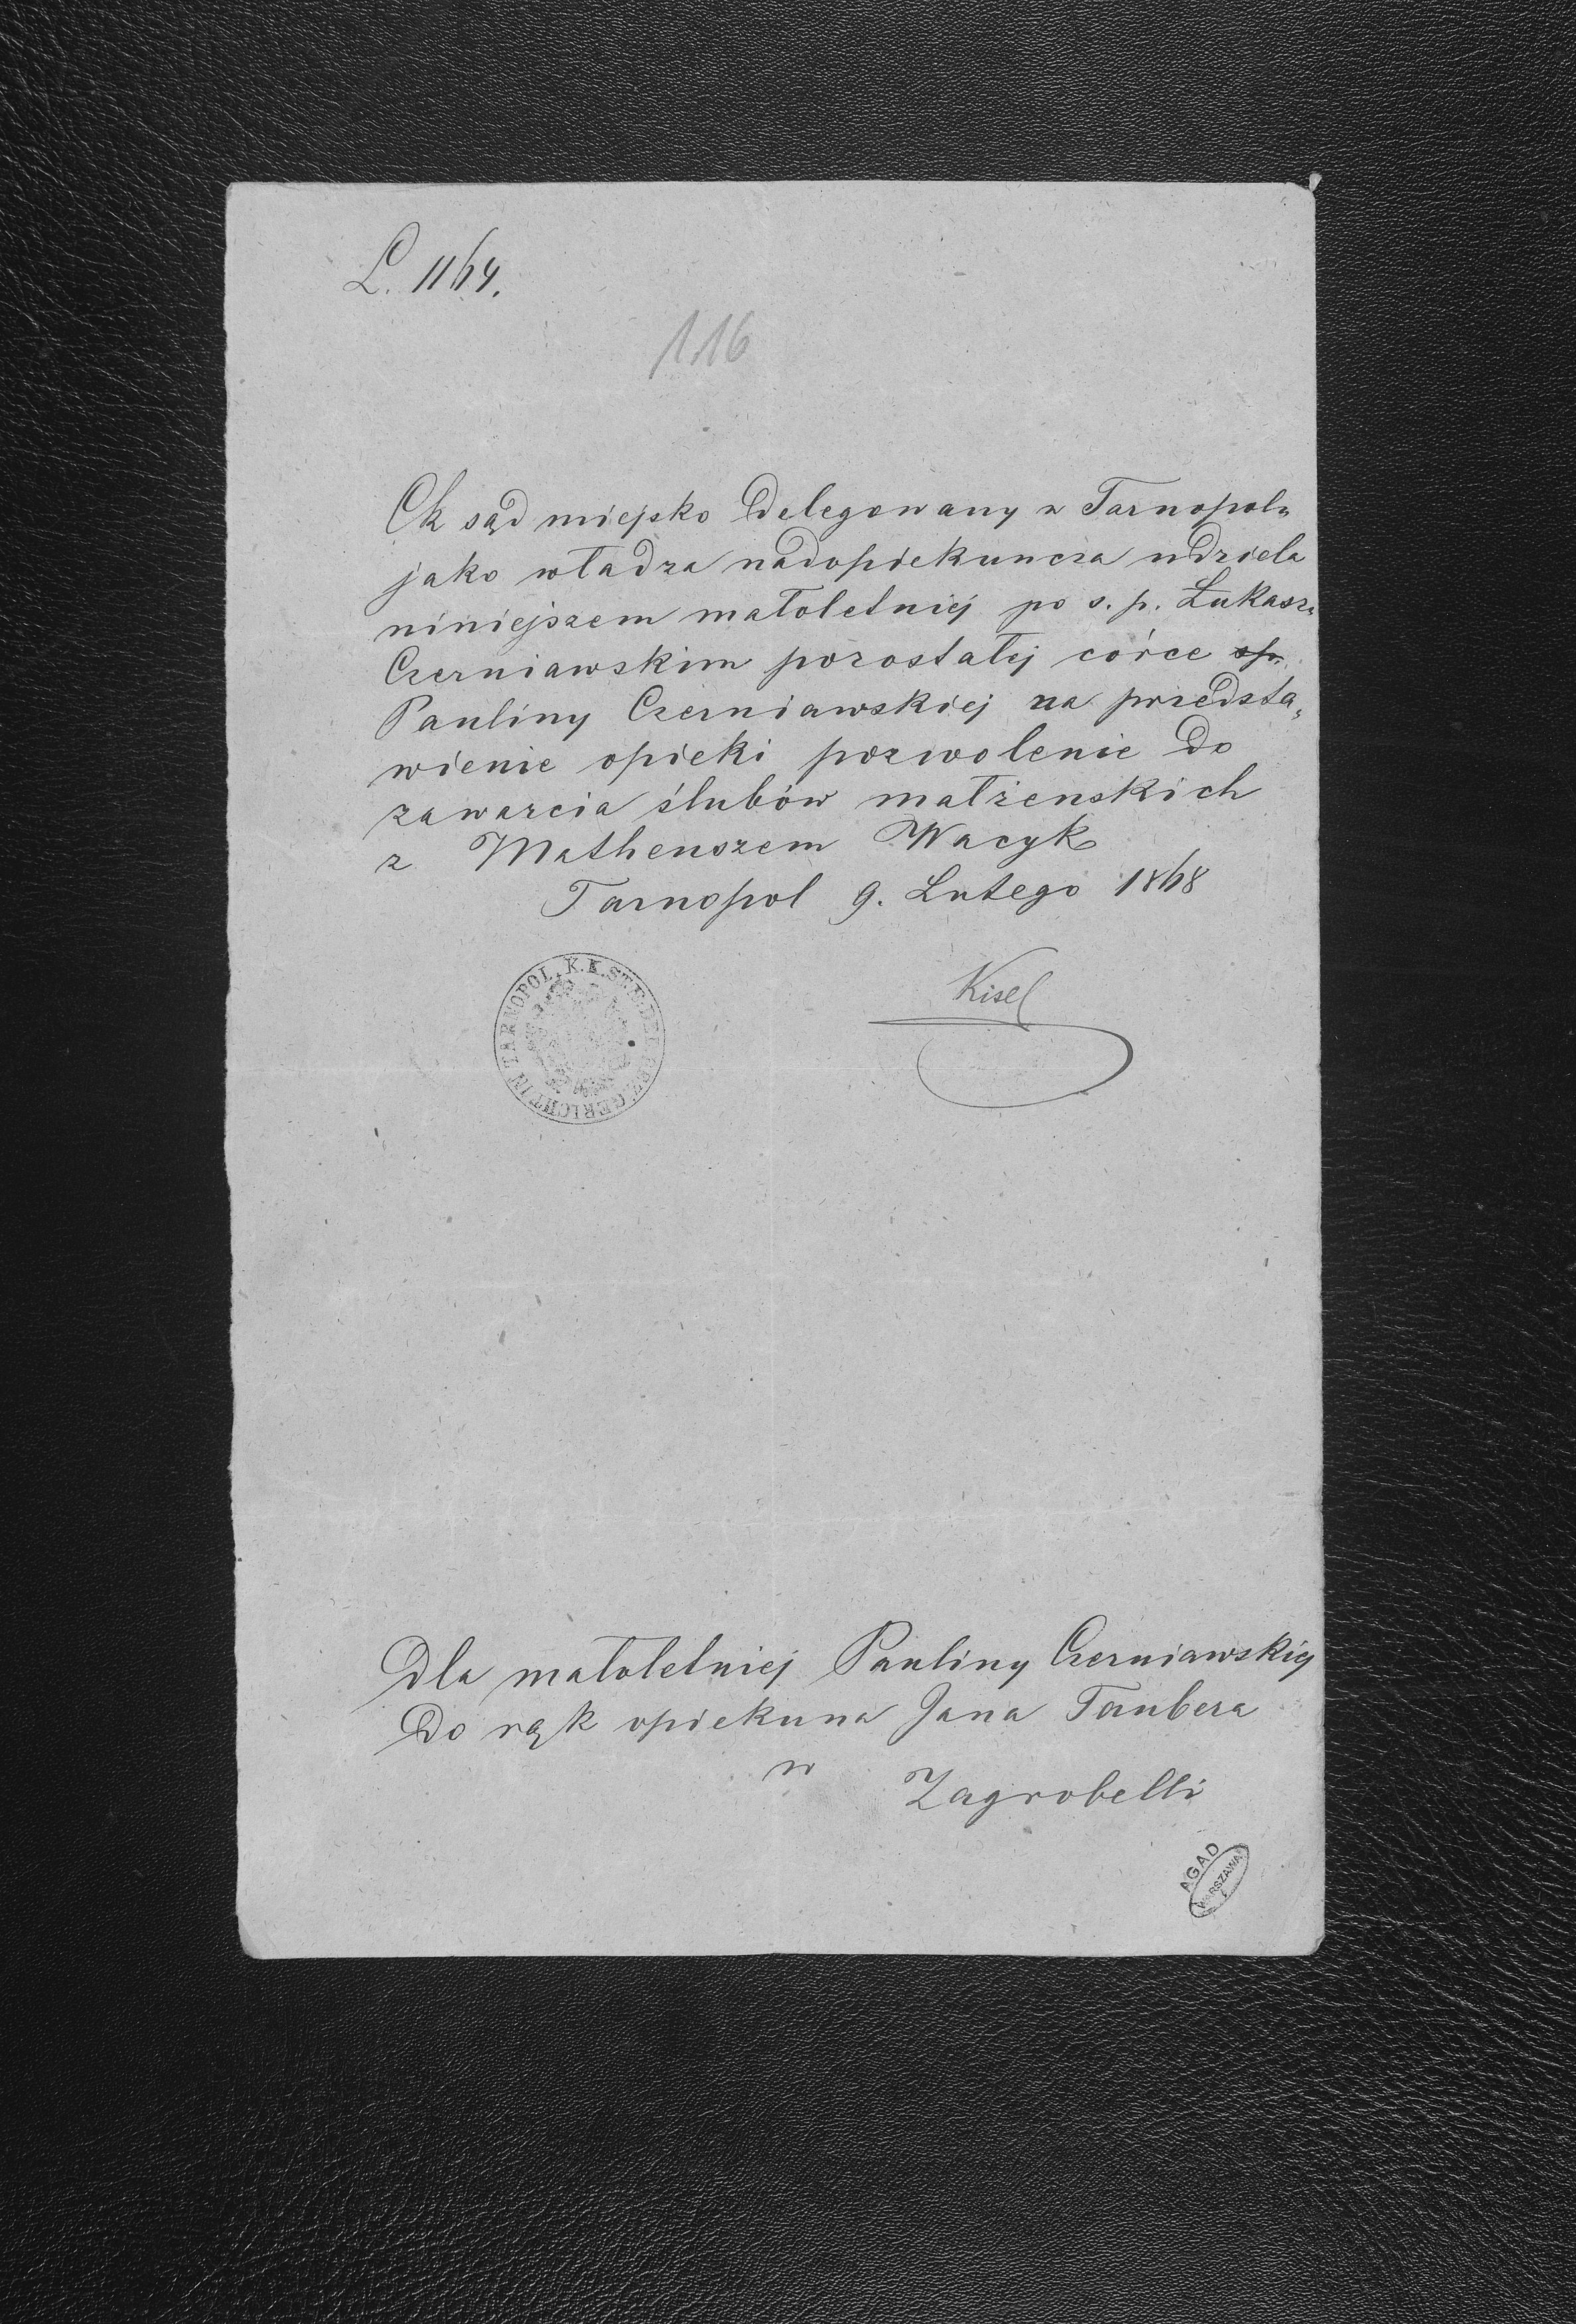 L. 1164.
116
Ck sąd miejsko Delegowany w Tarnopolu
jako władza nadopiekuncza udziela
niniejszem małoletniej po s. p. Łukaszu
Czerniawskim pozostałej córce sp.
Pauliny Czerniawskiej na przedsta„
wienie opieki pozwolenie do
zawarcia ślubów małżenskich
z Matheuszem Wacyk
Tarnopol 9. Lutego 1868
K. K. ST. DEL. BEZ. GERICHT IN TARNOPOL
Kisel
Dla małoletniej Pauliny Czerniawskiej
Do rąk opiekuna Jana Taubera
w Zagrobelli
AGAD
WARSZAWA